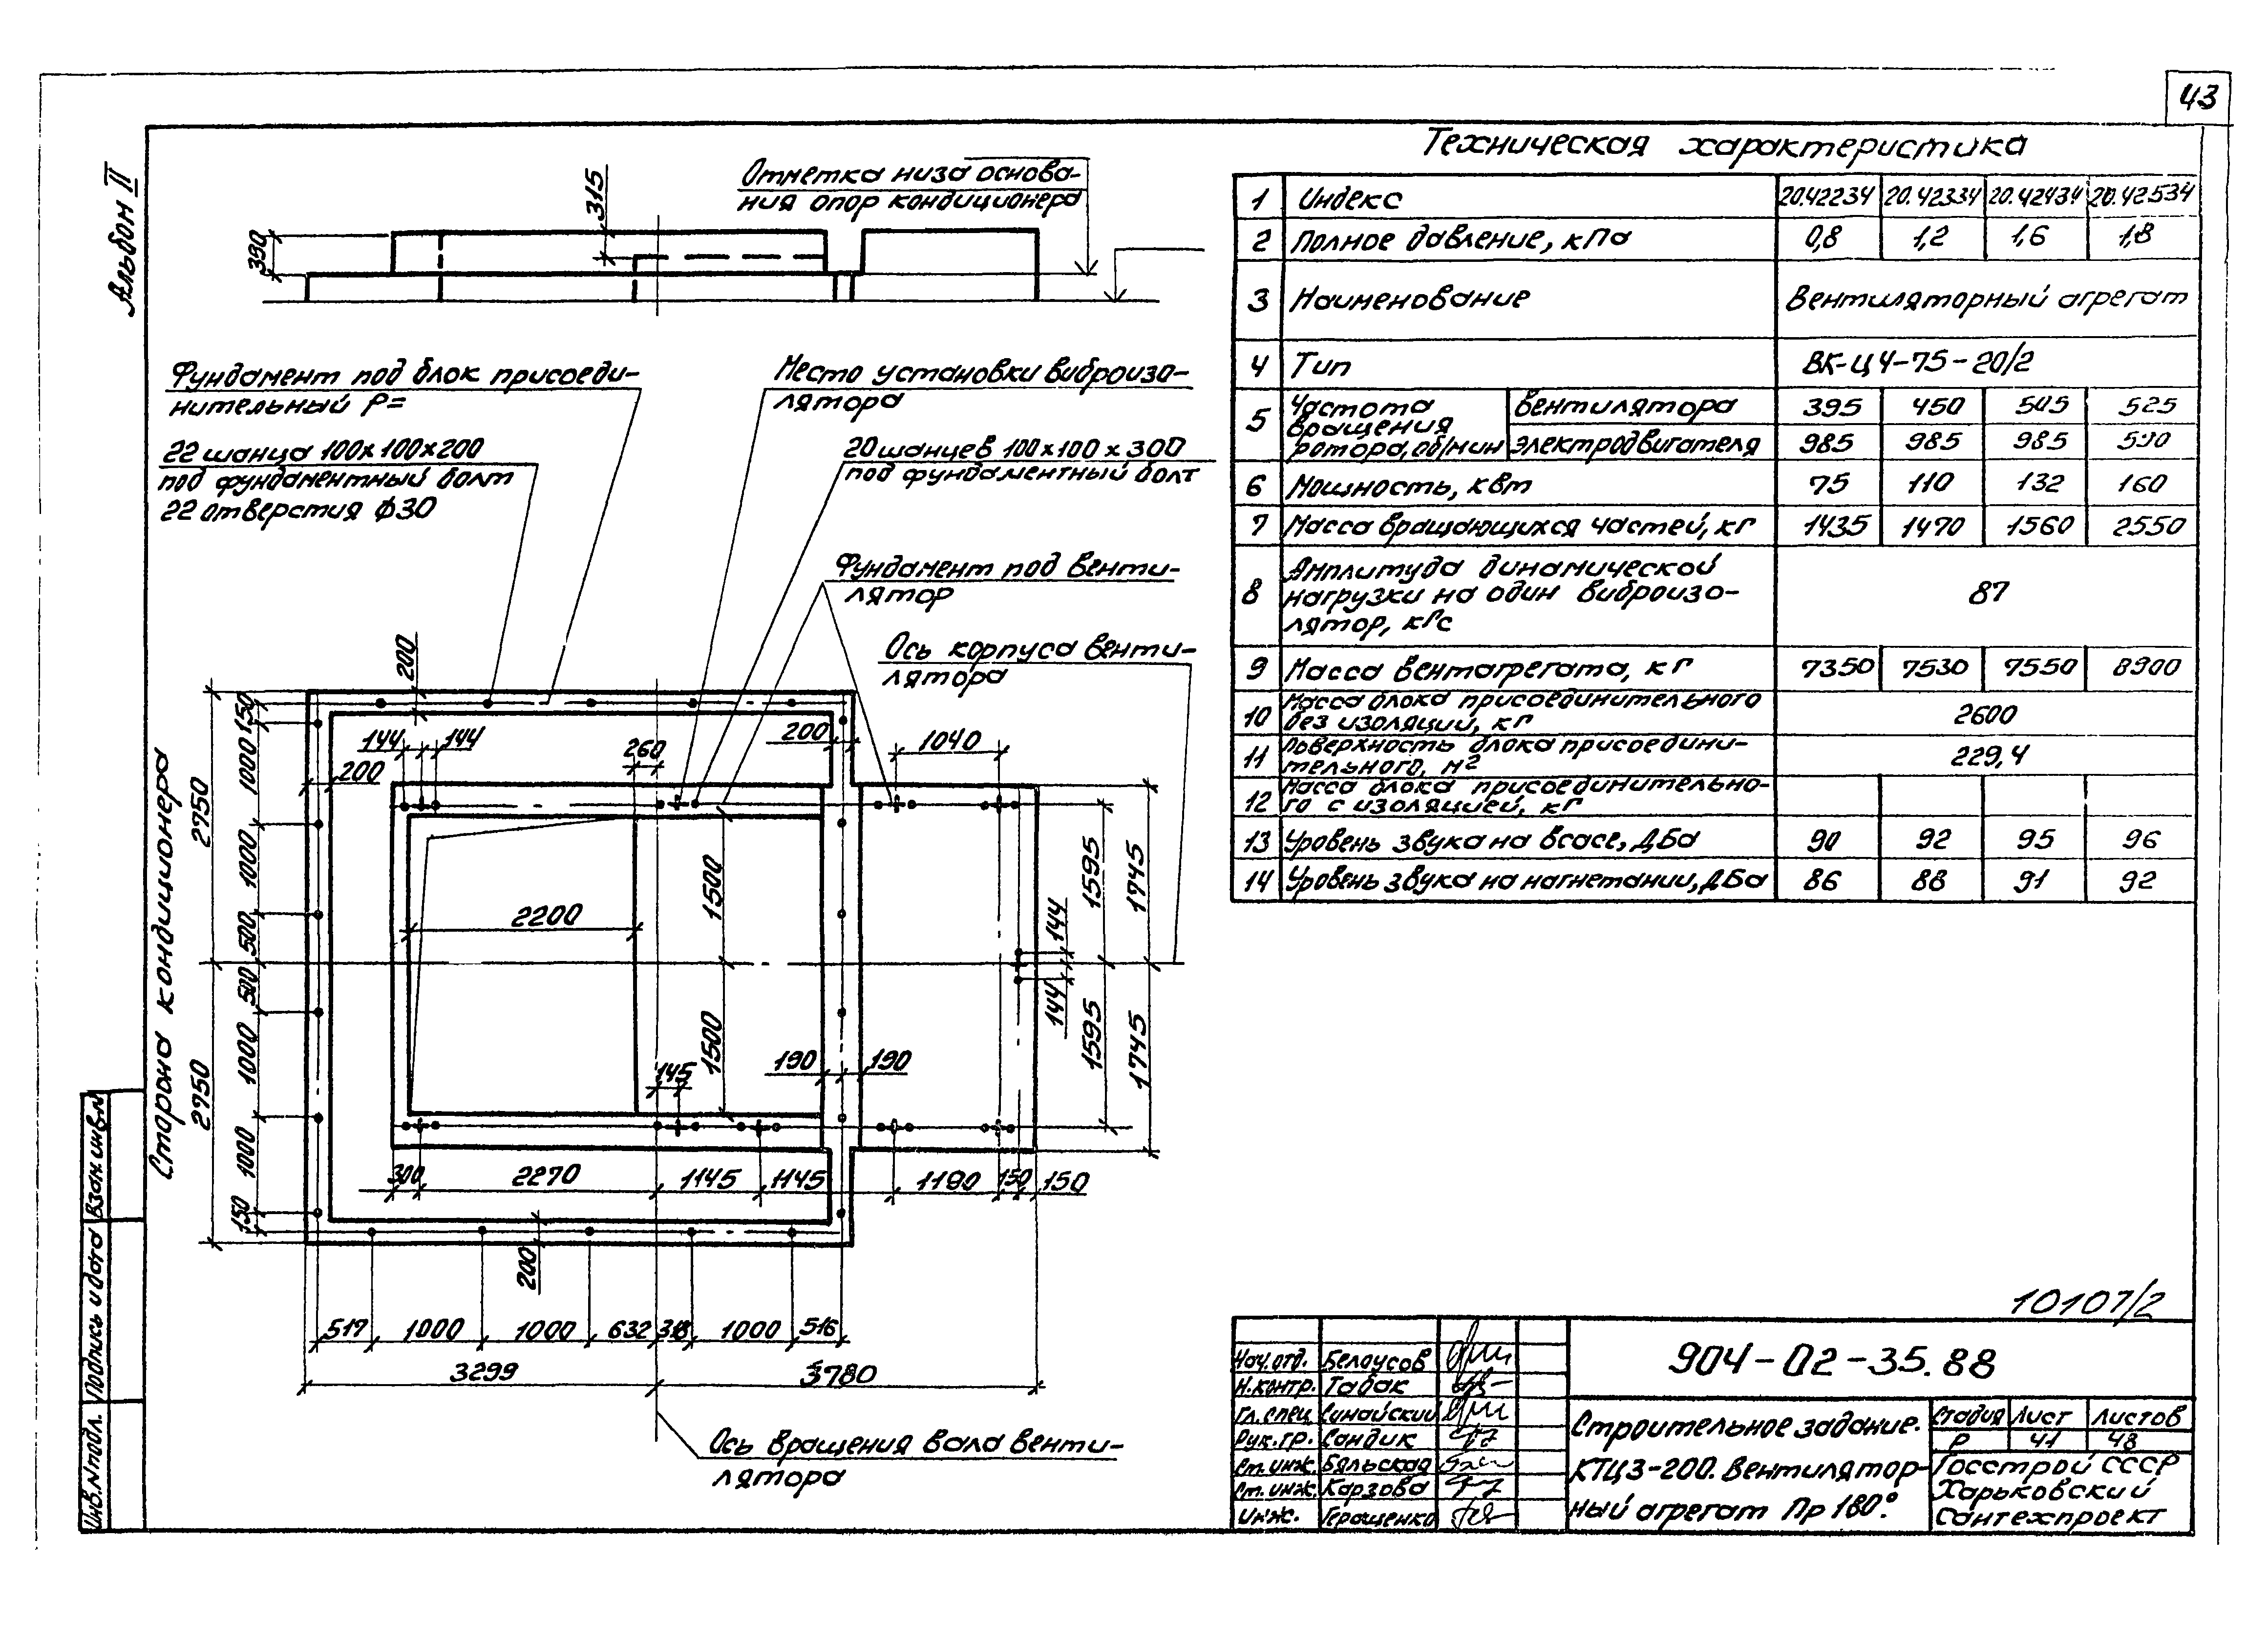 43
Альбом II
Отметка низа основа-
ния опор кондиционера
315
Фундамент под блок присоеди-
нительный Р=
22 шанца 100х100х200
под фундаментный болт
22 отверстия ф30
Место установки виброизо-
лятора
20 шанцев 100х100х300
под фундаментный болт
Фундамент под венти-
лятор
Ось корпуса венти-
лятора
Сторона кондиционера
2750
2750
150
1000
1000
500
500
1000
1000
150
200
144
144
200
260
200
1040
2200
1500
1500
145
190
190
144
144
1595
1595
1745
1745
300
2270
1145
1145
1190
150
150
200
517
1000
1000
632
318
1000
516
3299
3780
Ось вращения вала венти-
лятора
Техническая характеристика
1 Индекс 20.42234 20.42334 20.42434 20.42534
2 Полное давление, кПа 0,8 1,2 1,6 1,8
3 Наименование Вентиляторный агрегат
4 Тип ВК-Ц4-75-20/2
5 Частота вращения ротора, об/мин
вентилятора 395 450 505 525
электродвигателя 985 985 985 590
6 Мощность, кВт 75 110 132 160
7 Масса вращающихся частей, кг 1435 1470 1560 2550
8 Амплитуда динамической
нагрузки на один виброизо-
лятор, кГс 87
9 Масса вентагрегата, кг 7350 7530 7550 8900
10 Масса блока присоединительного
без изоляций, кг 2600
11 Поверхность блока присоедини-
тельного, м2 229,4
12 Масса блока присоединительно-
го с изоляцией, кг
13 Уровень звука на всасе, ДБа 90 92 95 96
14 Уровень звука на нагнетании, ДБа 86 88 91 92
10107/2
904-02-35.88
Нач.отд. Белоусов
Н.контр. Табак
Гл.спец. Сунайский
Рук.гр. Сандик
Ст.инж. Бяльская
Ст.инж. Карзова
Инж. Геращенко
Строительное задание.
КТЦ3-200. Вентилятор-
ный агрегат Пр 180°.
Стадия Лист Листов
Р 41 48
Госстрой СССР
Харьковский
Сантехпроект
Инв.N подл. Подпись и дата Взам.инв.N